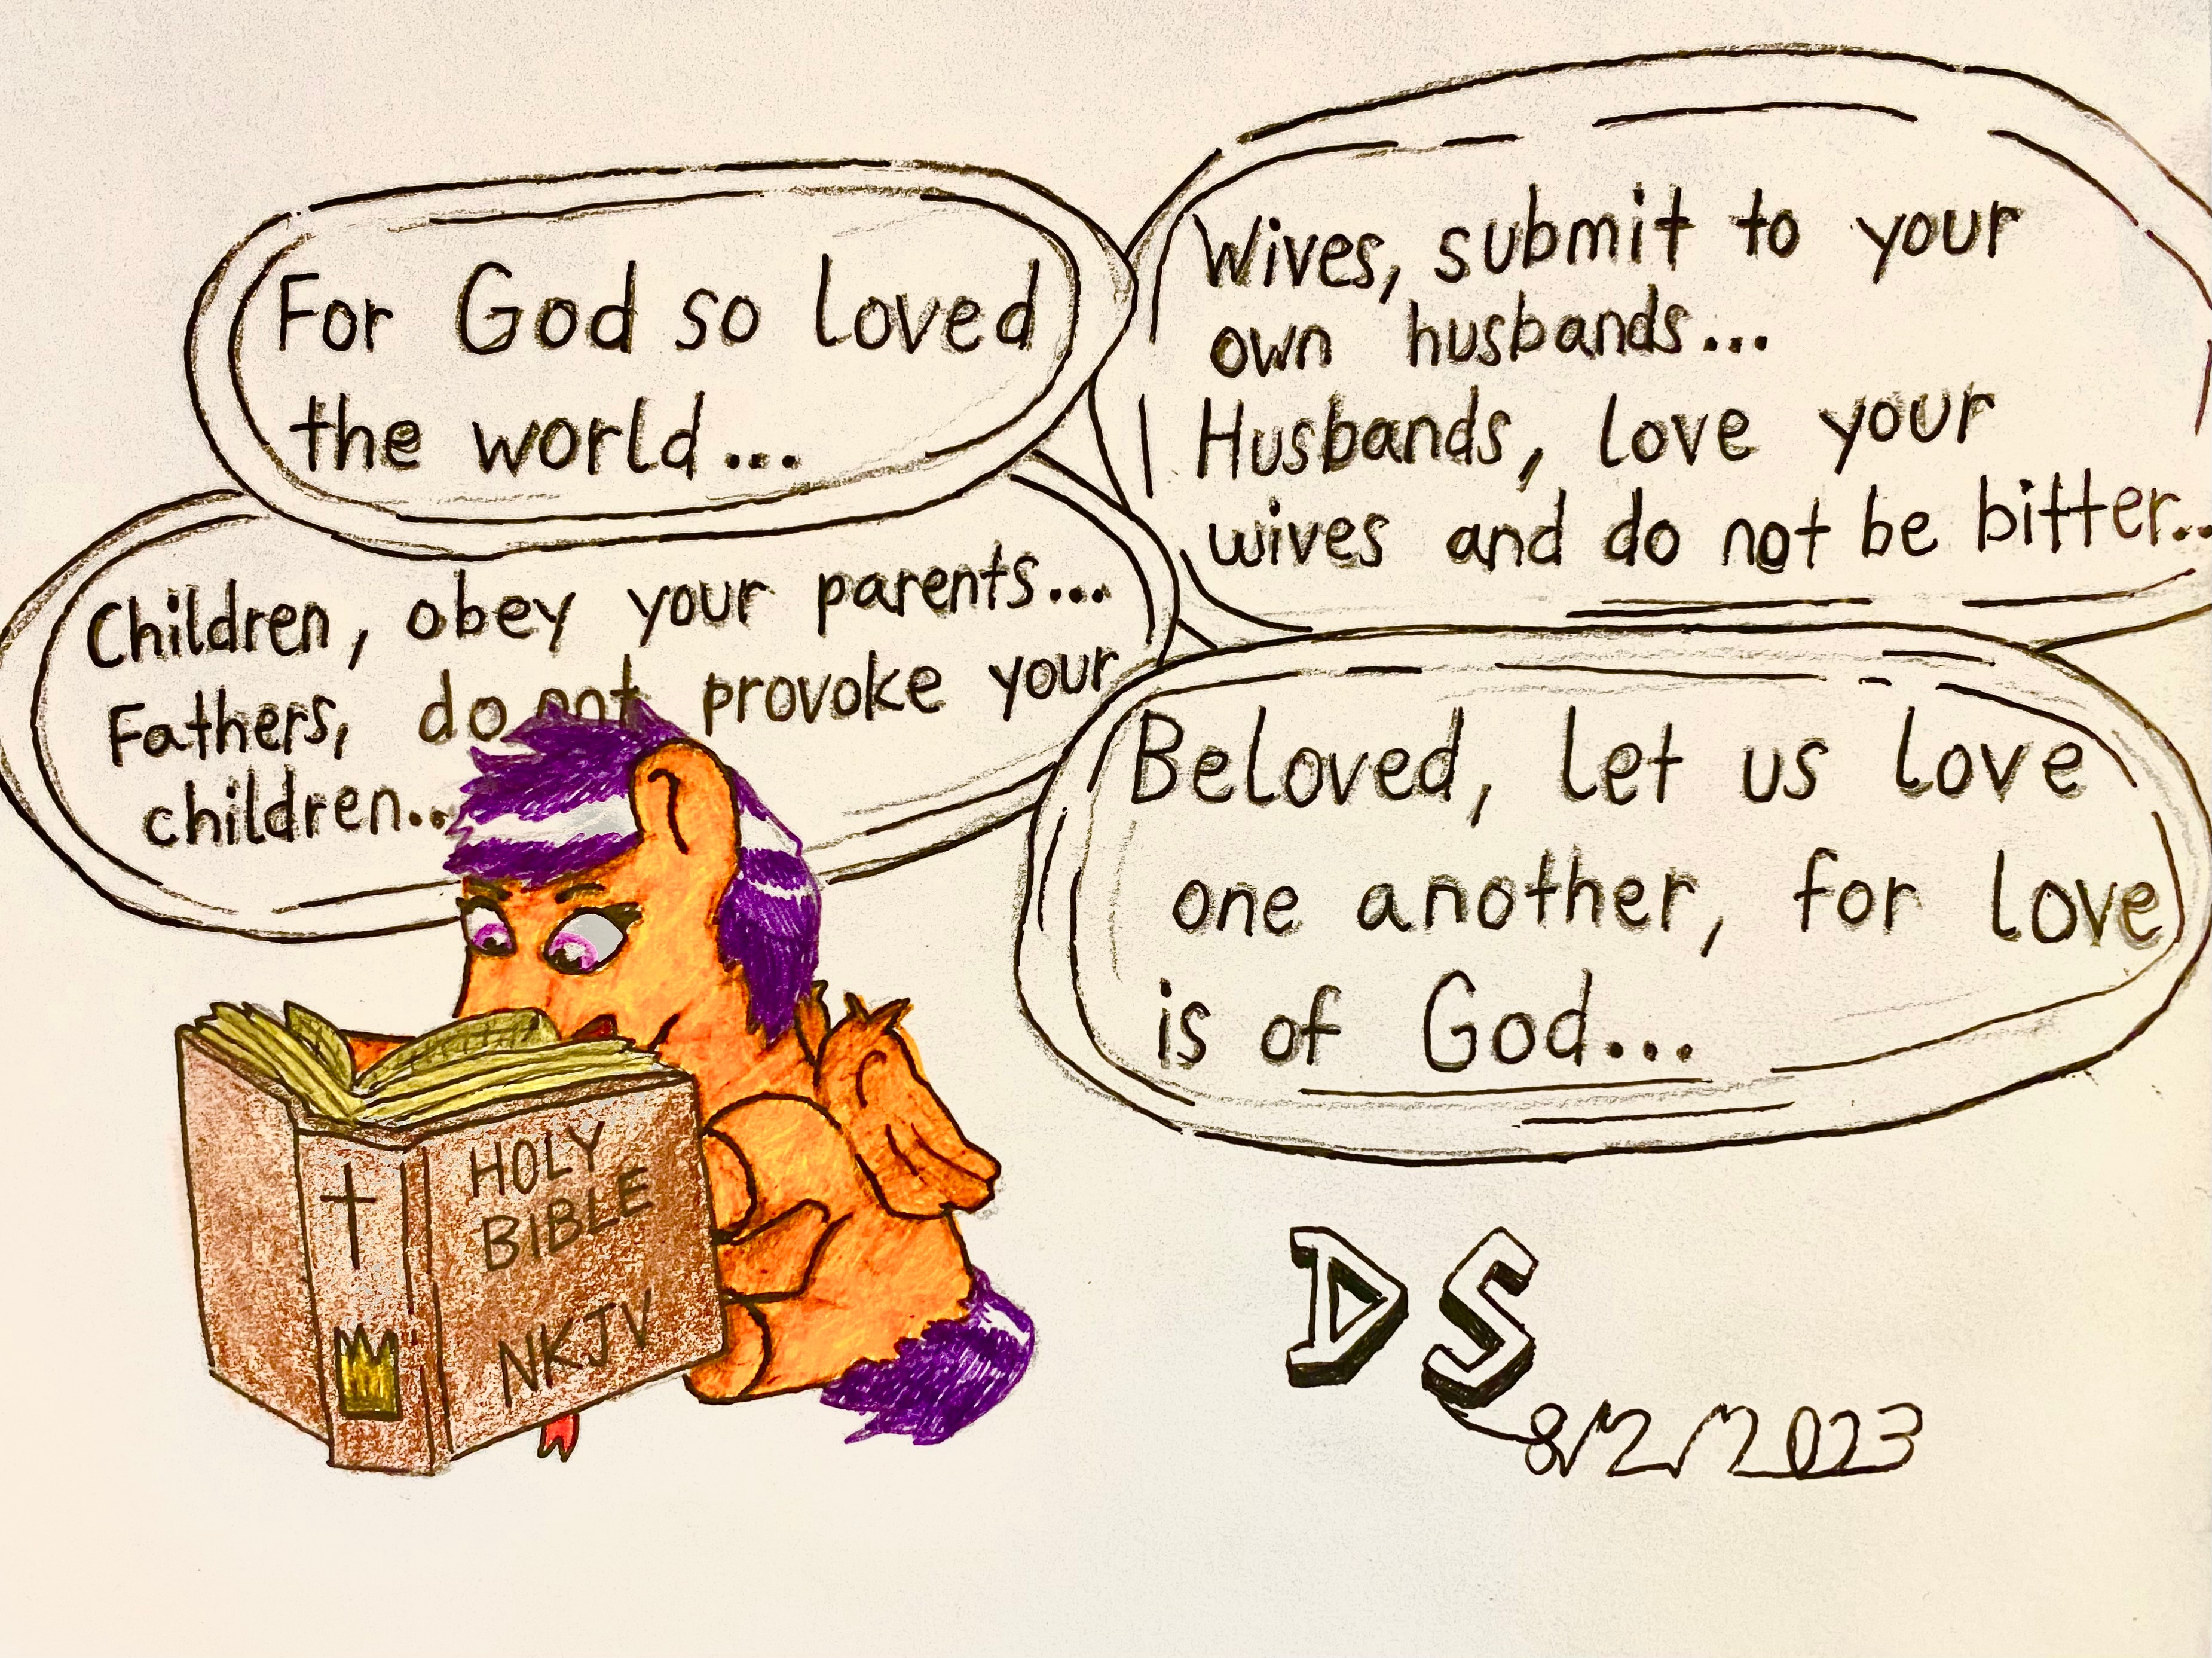 For God so loved
the world...
Wives, submit to your
own husbands...
Husbands, love your
wives and do not be bitter..
Children, obey your parents...
Fathers, do not provoke your
children..
Beloved, let us love
one another, for love
is of God...
HOLY
BIBLE
NKJV
DS
8/2/2023